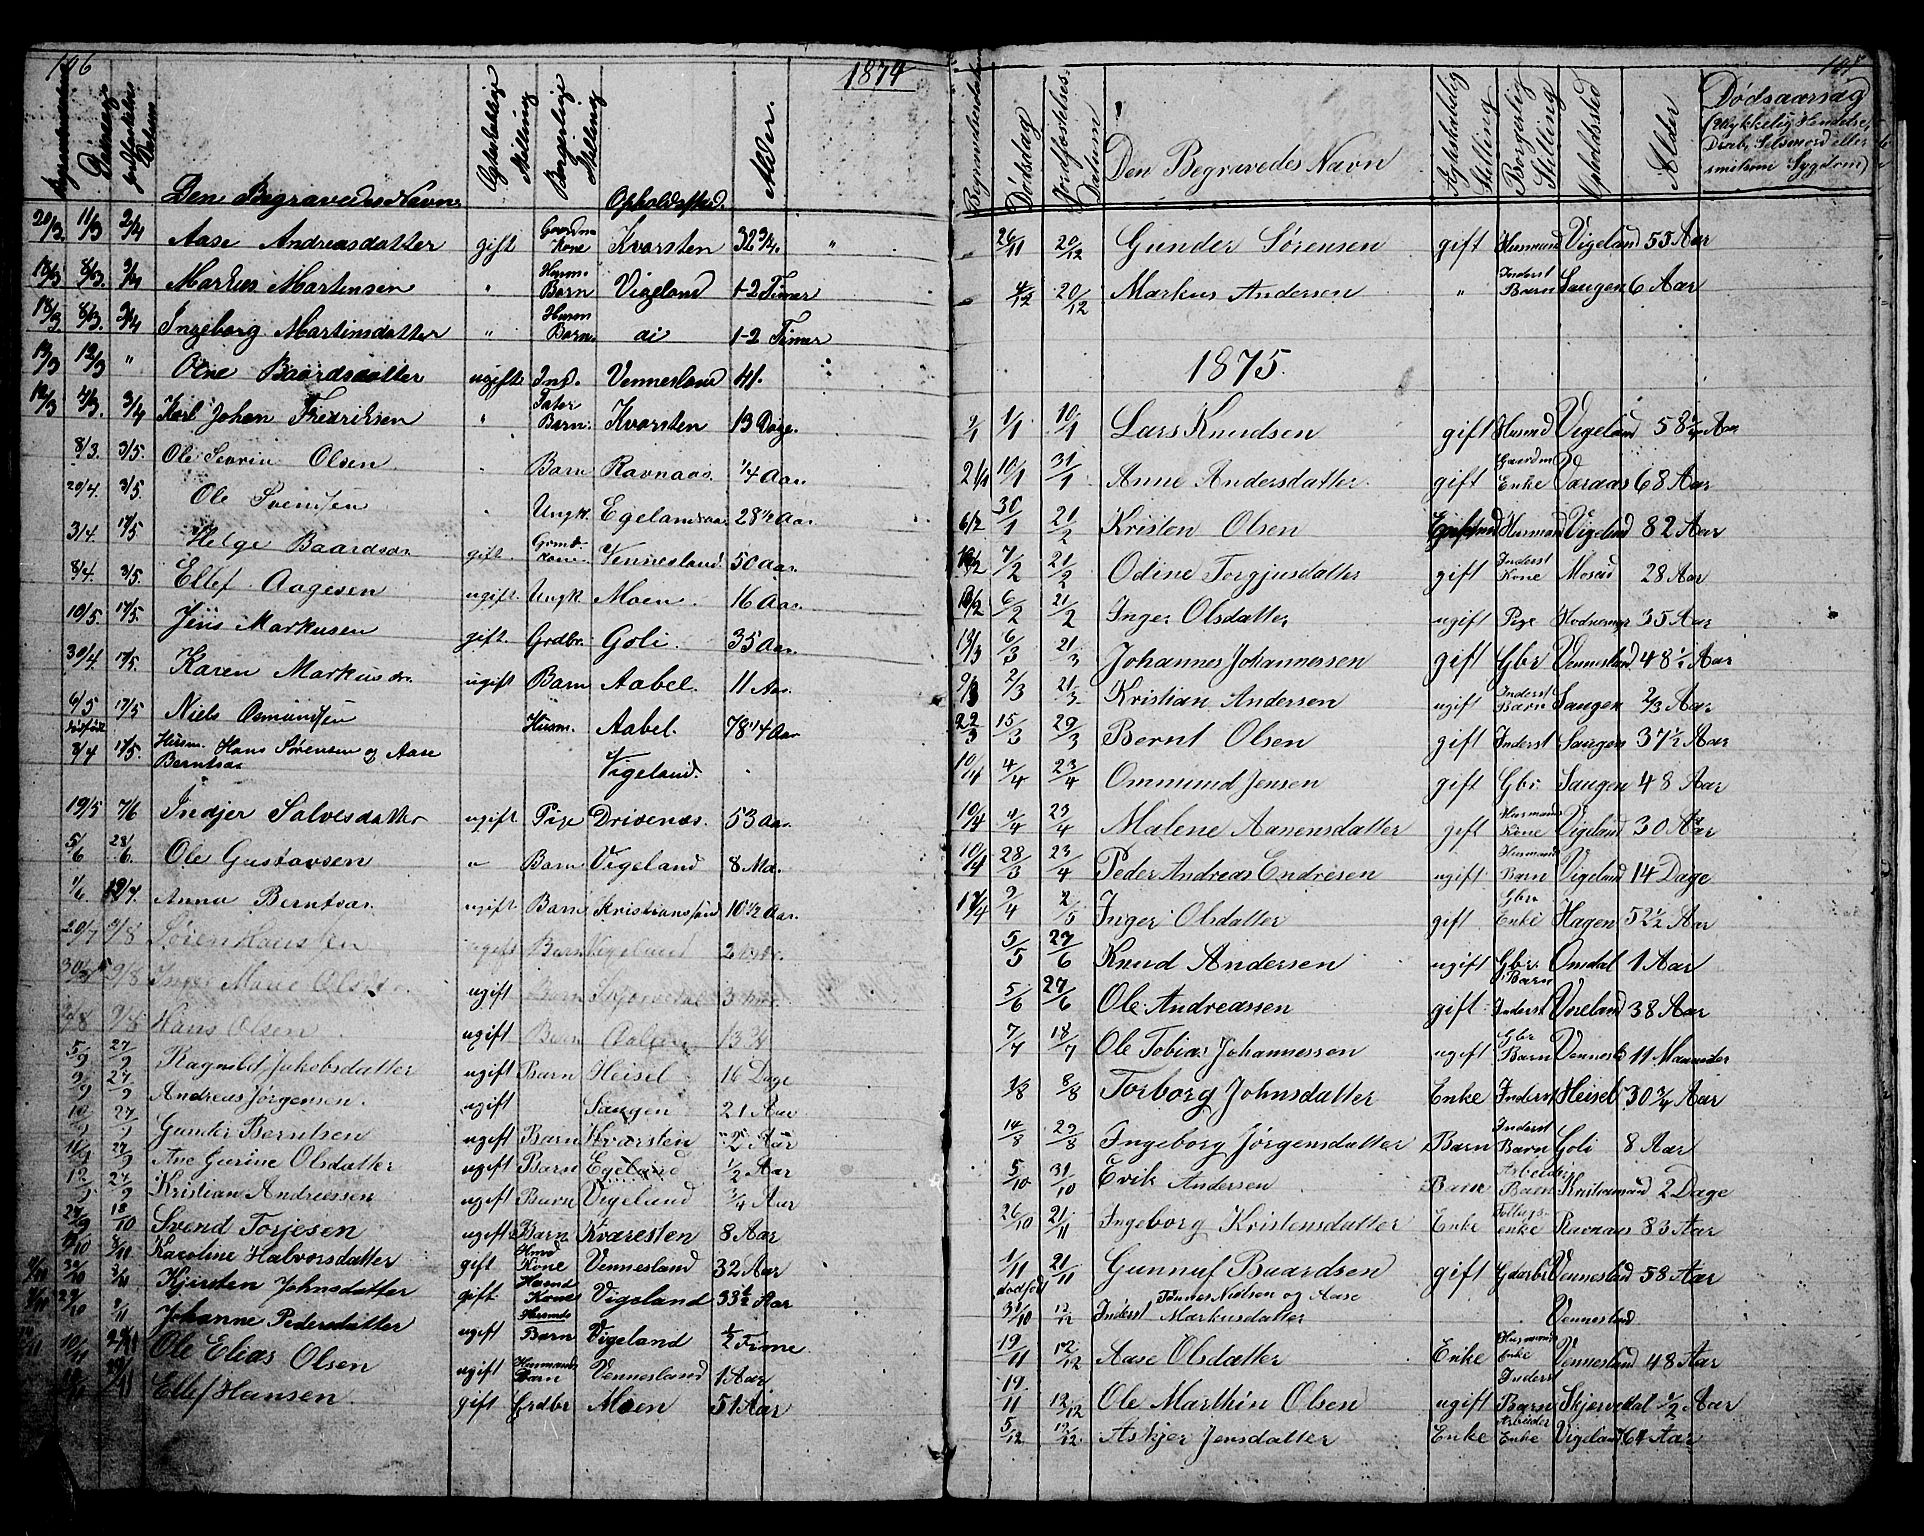 106
1874
Dødsdag
Datum
Den Begravedes Navn
Ægteskablige Stilling
Borgerlige Stilling
Opholdssted.
Alder.
20/3 11/3 2/4 Aase Andreasdatter gift Kone Kvarsten 32 3/4. "
13/3 8/3. 2/4 Markus Martinsen " Husm. Barn Vigeland 1-2 Timer
13/3 8/3. 2/4 Ingeborg Martinsdatter " Husm Barn. 1-2 Timer
12/3 " Baardsdatter ugift Ind. Vennesland 41.
3/4 Karl Johan Fredriksen " Tater Barn. Kvarsten 13 Dage.
8/3. 3/5. Ole Sevrin Olsen " Barn Ravnaas. 1/4 Aar.
20/4. 3/5. Ole Svendsen " Ungk. 28 1/2 Aar.
3/4. 17/5 Helge Baardson gift. Vennesland 50 Aar.
8/4. 3/5. Ellef Aagesen ugift Ungk. Moen. 16 Aar.
10/5. 17/5. Jens Markusen gift. Grdbr. Goli. 35 Aar.
30/4. 17/5. Karen Markusdr. ugift Barn Aabel. 11 Aar.
6/5 17/5 Niels Osmundsen Husm. Aabel. 78 1/4 Aar
dødfødt
3/4 17/5. Husm. Hans Sørensen og Aase
Berntsdr Vigeland.
19/5 7/6 Indjer Salvesdatter ugift Pige Drivenes. 53 Aar.
5/6 28/6. Ole Gustavsen " Barn Vigeland 8 Ma.
1/6. 12/7. Anna Berntsdr. ugift Barn Kristianssand 10 1/2 Aar.
20/7 9/8 Søren Hansen ugift Barn Vigeland
9/8 Inger Marie ugift Barn Skjervedal
9/8 Hans Olsen ugift Barn 13 3/4
5/9 27/9 Ragnild Jakobsdatter ugift Barn Heisel 16 Dage
9/9 27/9 Andreas Jørgensen. ugift Saugen 21 Aar
27/9 Gunder Berntsen ugift Barn Kvarsten 2 Aar
27/9 Ane Gurine Olsdatter ugift Barn Egeland 1/2 Aar
12/9 27/9 Kristian Andreassen ugift Barn Vigeland 3/4 Aar
27/9 18/10 Svend Torjesen ugift Barn Kvaresten 8 Aar
8/11 Karoline Halvorsdatter gift Kone Vennesland 32 Aar
Kjirsten Johnsdatter gift. Husmd Kone Vigeland 33 1/2 Aar
Johanne Pedersdatter ugift Husmds Barn Vigeland 1/2 Time
10/11 Ole Elias Olsen ugift Husmands Barn Vennesland 1 Aar
Ellef Hansen. gift Grdbr Moen 51 Aar
Dødsdag
Jordfæstelses Datum
Den Begravedes Navn
Ægteskabelig Stilling
Borgerlig Stilling
Opholdssted
Alder
Dødsaarsag
(Ulykkelig Hændelse,
Drab, Selvmord eller
smitsom Sygdom)
" 26/11 20/12 Gunder Sørensen gift Husmand Vigeland 55 Aar
" 4/12 20/12 Markus Andersen " Inderst Barn Saugen 6 Aar
1875.
1/1 10/1 Lars Knudsen gift Husmd Vigeland 58 Aar
10/1 31/1 Anne Andersdatter gift Enke Varaas 68 Aar
6/2 30/1 21/2 Kristen Olsen Husmand Vigeland 82 Aar
7/2 21/2 Odine Torgjusdatter gift Inderst Kone Mosæd 28 Aar
6/2 21/2 Inger Olsdatter ugift Pige 35 Aar
13/3 6/3 21/3 Johannes Johannessen gift Gbr Vennesland 48 1/2 Aar
9/3 2/3 21/3 Kristian Andersen ugift Inderst Barn Saugen 2/3 Aar
22/3 15/3 29/3 Bernt Olsen gift Inderst Saugen 37 1/2 Aar
10/4 4/4 23/4 Ommund Jensen gift Gbr Saugen 48 Aar
10/4 4/4 23/4 Malene Aanensdatter gift Husmands Kone Vigeland 30 Aar
10/4 28/3 23/4 Peder Andreas Endresen ugift Husmands Barn Vigeland 14 Dage
17/4 9/4 2/5 Inger Olsdatter gift Gbr Enke Hagen 52 1/2 Aar
5/5 27/6 Knud Andersen ugift Gbr. Barn Omdal 1 Aar
5/6 27/6 Ole Andreassen gift Inderst Voreland 38 Aar
7/7 18/7 Ole Tobias Johannessen ugift Gbr Barn Vennesl 11 Maaneder
1/8 8/8 Torborg Johnsdatter Enke Inderst Heisel 30 3/4 Aar
14/8 29/8 Ingeborg Jørgensdatter Barn Inderst Barn Goli 8 Aar
5/10 31/10 Erik Andersen Barn Arbeider Barn Kristiansand 2 Dage
26/10 21/11 Ingeborg Kristensdatter Enke enke Ravnaas 83 Aar
1/11 21/11 Gunnuf Baardsen gift Gdarbr Vennesland 58 Aar
dødfød
31/10 12/12 Inderst Tønnes Nielsen og Aase
Markusdatter Vennesland
19/11 12/12 Aase Olsdatter Enke Husmands Enke Vennesland 48 Aar
19/11 12/12 Ole Marthin Olsen ugift Inderst Barn Skjervedal 1/2 Aar
5/12 12/12 Askjer Jensdatter Enke Arbeider Enke Vigeland 64 Aar